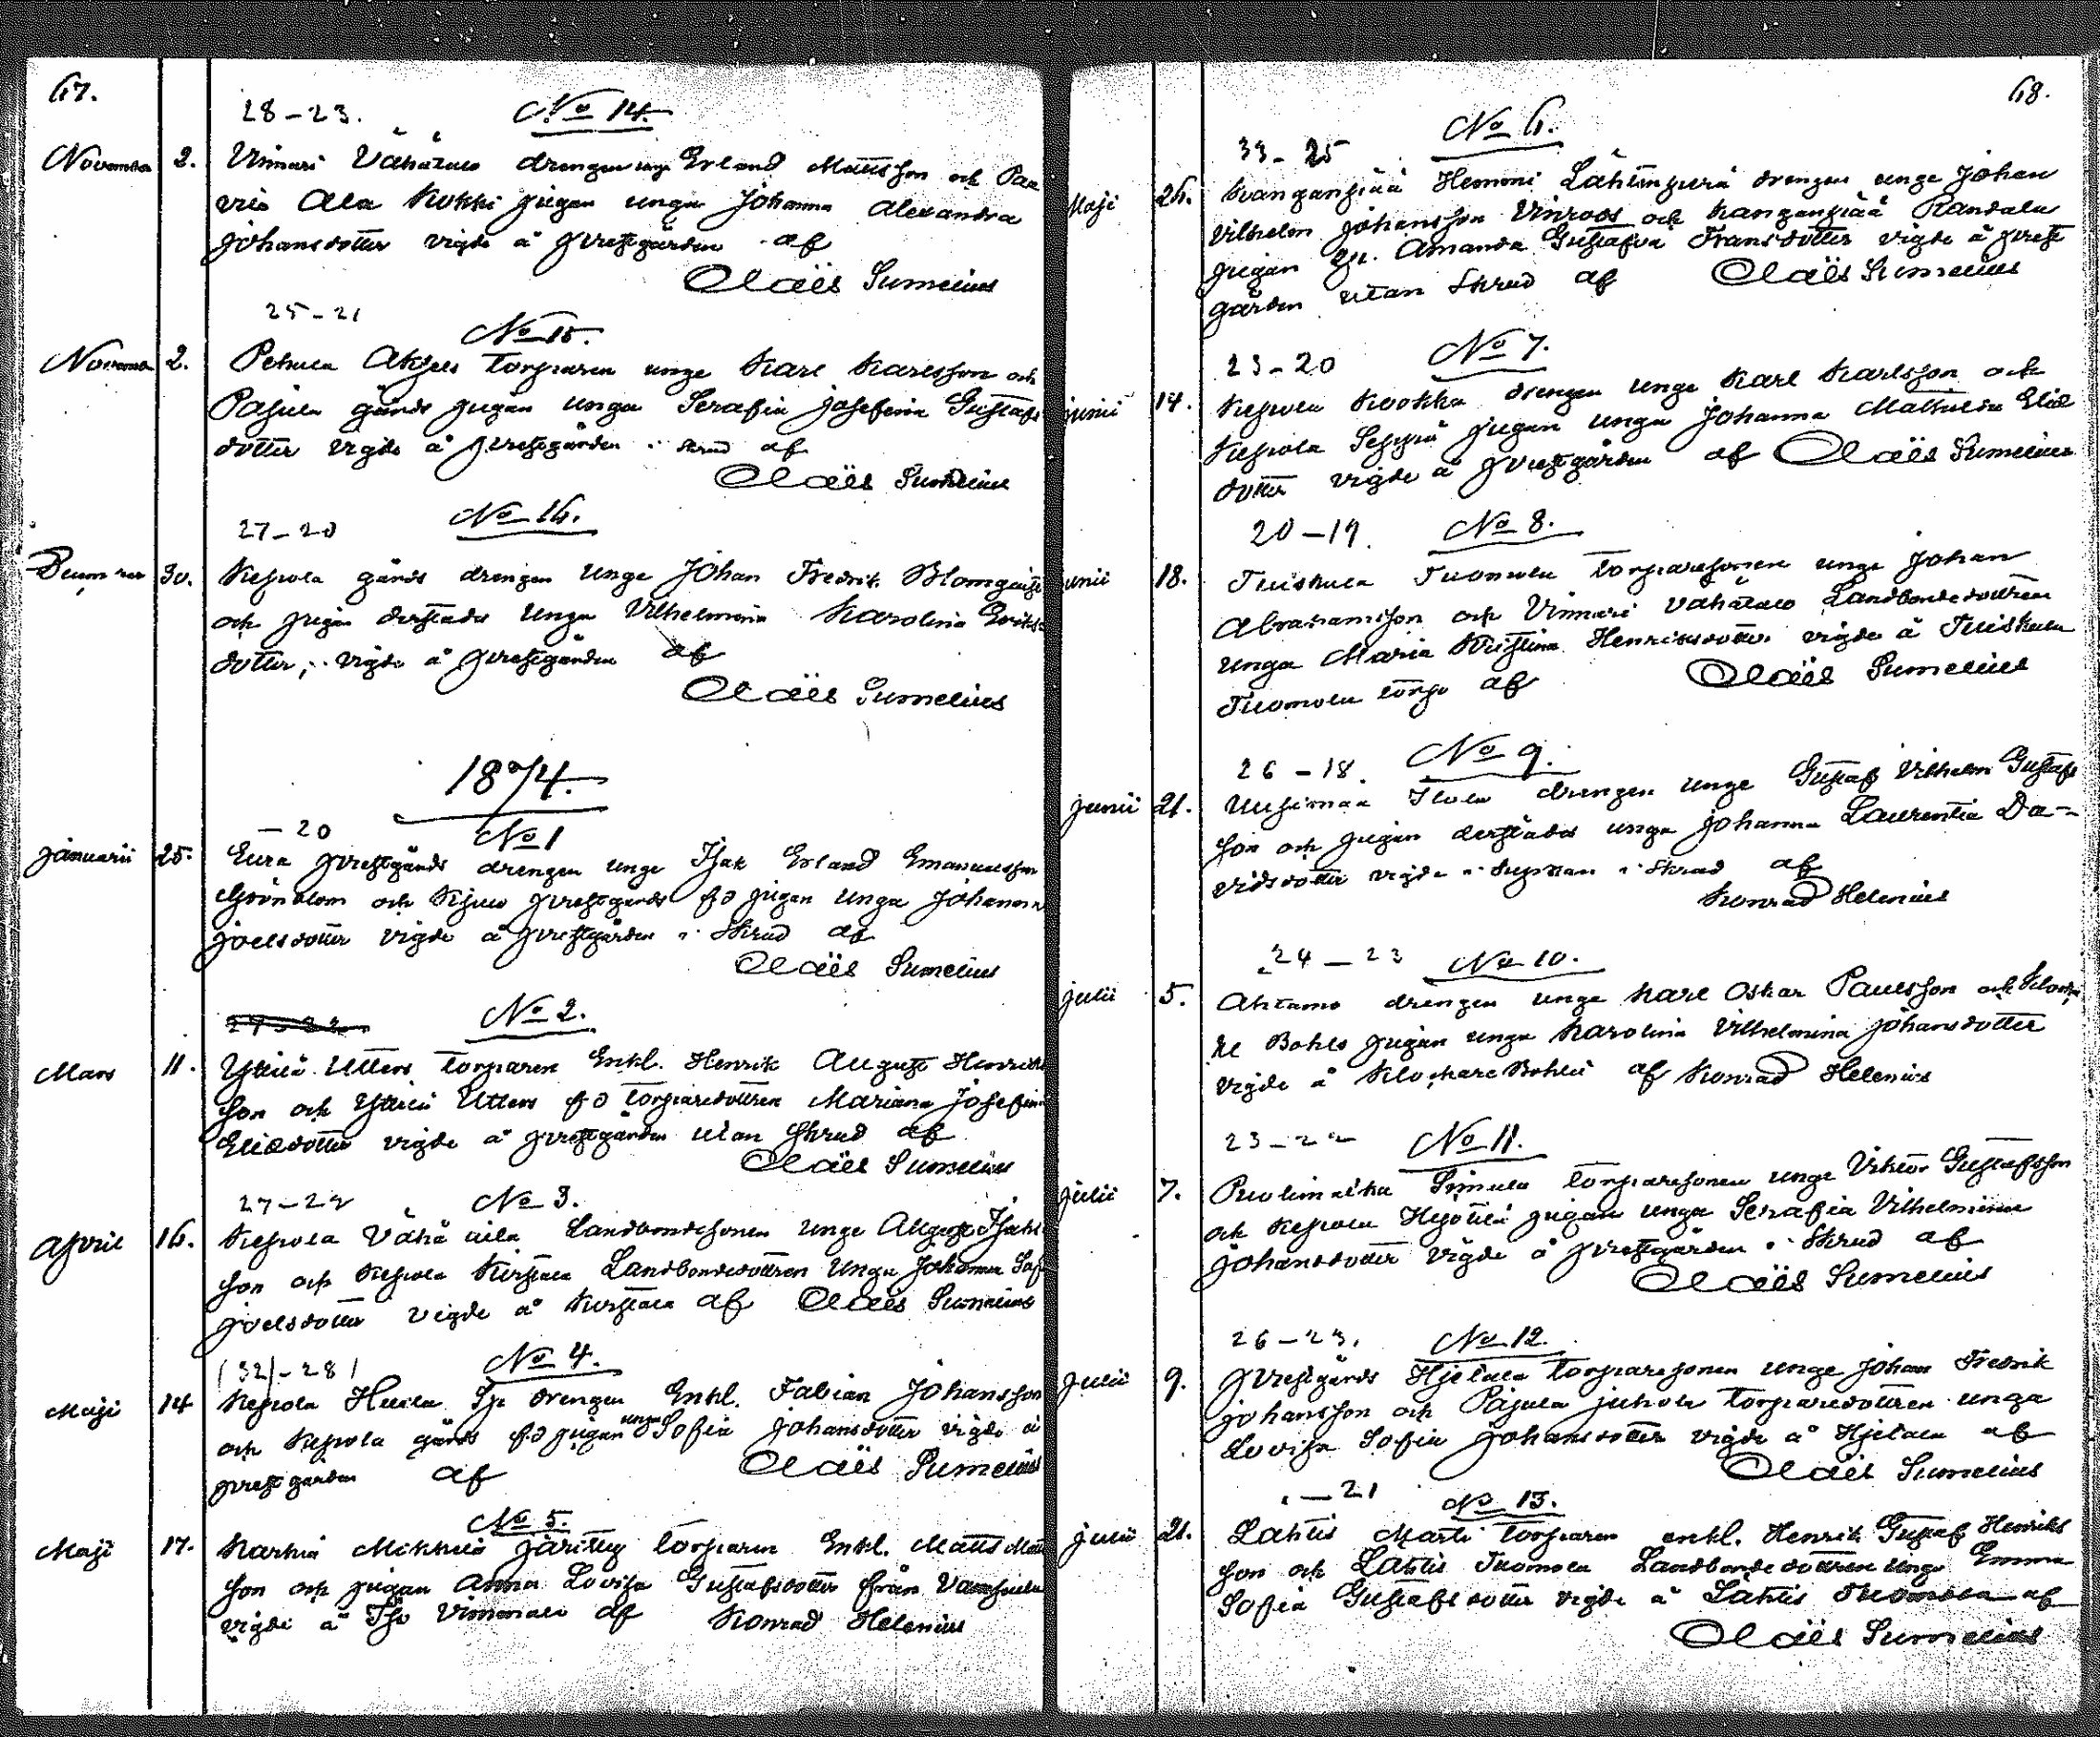 67.
28-23. No 14.
November 2. Vinnari Vähätalo drengen unge Erland Mattsson och Paa
vio Ala Kokki pigan unga Johanna Alexandra
Johansdotter vigde å prestgården af
Claës Sumelius
25-21
No 15.
November 2. Torparen unge Karl Karlsson och
Pajula gårds pigan unga Serafia Josefina Gustafs
dotter vigde å prestgården i skrud af
Claës Sumelius
27-20 No 16.
30. Kepola gårds drengen unge Johan Fredrik Blomqvist
och pigan derstädes unga Vilhelmina Karolina Eriks
dotter, vigde å prestgården af
Claës Sumelius
1874.
-20 No 1
Januarii 25. Eura prestgårds drengen unge Isak Erland Emanuelsson
Grönblom och Kjulo prestgårds fd pigan unga Johanna
Joelsdotter vigde å prestgården i Skrud af
Claës Sumelius
No 2.
Mars 11. Utters torparen Enkl. Henrik August Henriks
son och Utters fd torparedottren Mariana Josefina
Eliedotter vigde å prestgården utan skrud af
Claës Sumelius
27-22 No 3.
April 16. Kepola Vähä Landbondesonen unge August Isaks
son och Kepola Landbondedottren unga Johanna
Joelsdotter vigde å af Claës Sumelius
(32)-28) No 4.
Maji 14 Kepola drengen Enkl. Fabian Johansson
och Kepola gårds fd pigan unga Sofia Johansdotter vigde å
prestgården af Claës Sumelius
No 5.
Maji 17. torparen Enkl. Matts
son och pigan Anna Lovisa Gustafsdotter från
vigde å Iso Vimmala af Konrad Helenius
68.
No 6.
33-25
Maji 26. Hemmi drengen unge Johan
Vilhelm Johansson Vinroos och Kanganpää Randala
pigan Amanda Gustafva Fransdotter vigde å prest
gården utan Skrud af Claës Sumelius
23-20 No 7.
Junii 14. Kepola Kookka drengen unge Karl Karlsson och
Kepola Seppä pigan unga Johanna Mathilda Elie
dotter vigde å prestgården af Claës Sumelius
20-19. No 8.
Junii 18. Tuiskula Tuomola torparesonen unge Johan
Abrahamsson och Vinnari Vähätalo Landbondedottren
unga Maria Kristina Henriksdotter vigde å Tuiskula
Tuomola torp af Claës Sumelius
26-18. No 9.
Junii 21. drengen unge Gustaf Vilhelm Gustafs
son och pigan derstädes unga Johanna Laurentia Da=
vidsdotter vigde i i Skrud af
Konrad Helenius
24-23 No 10.
Julii 5. Ahtamo drengen unge Karl Oskar Paulsson och Klocka
re Bohls pigan unga Karolina Vilhelmina Johansdotter
vigde å Klockare Bohlet af Konrad Helenius
23-22 No 11.
Julii 7. Puolimatka Simula torparesonen unge Viktor Gustafsson
och Kepola pigan unga Serafia Vilhelmina
Johansdotter vigde å prestgården i Skrud af
Claës Sumelius
26-23. No 12.
Julii 9. Prestgårds Hjetala torparesonen unge Johan Fredrik
Johansson och Pajula Juhola torparedottren unga
Lovisa Sofia Johansdotter vigde å Hjetala af
Claës Sumelius
-21 No 13.
Julii 21. Lahtis Martti torparen enkl. Henrik Gustaf Henriks
son och Lahtis Tuomola Landbondedottren unga Emma
Sofia Gustafsdotter vigde å Lahtis Tuomola af
Claës Sumelius